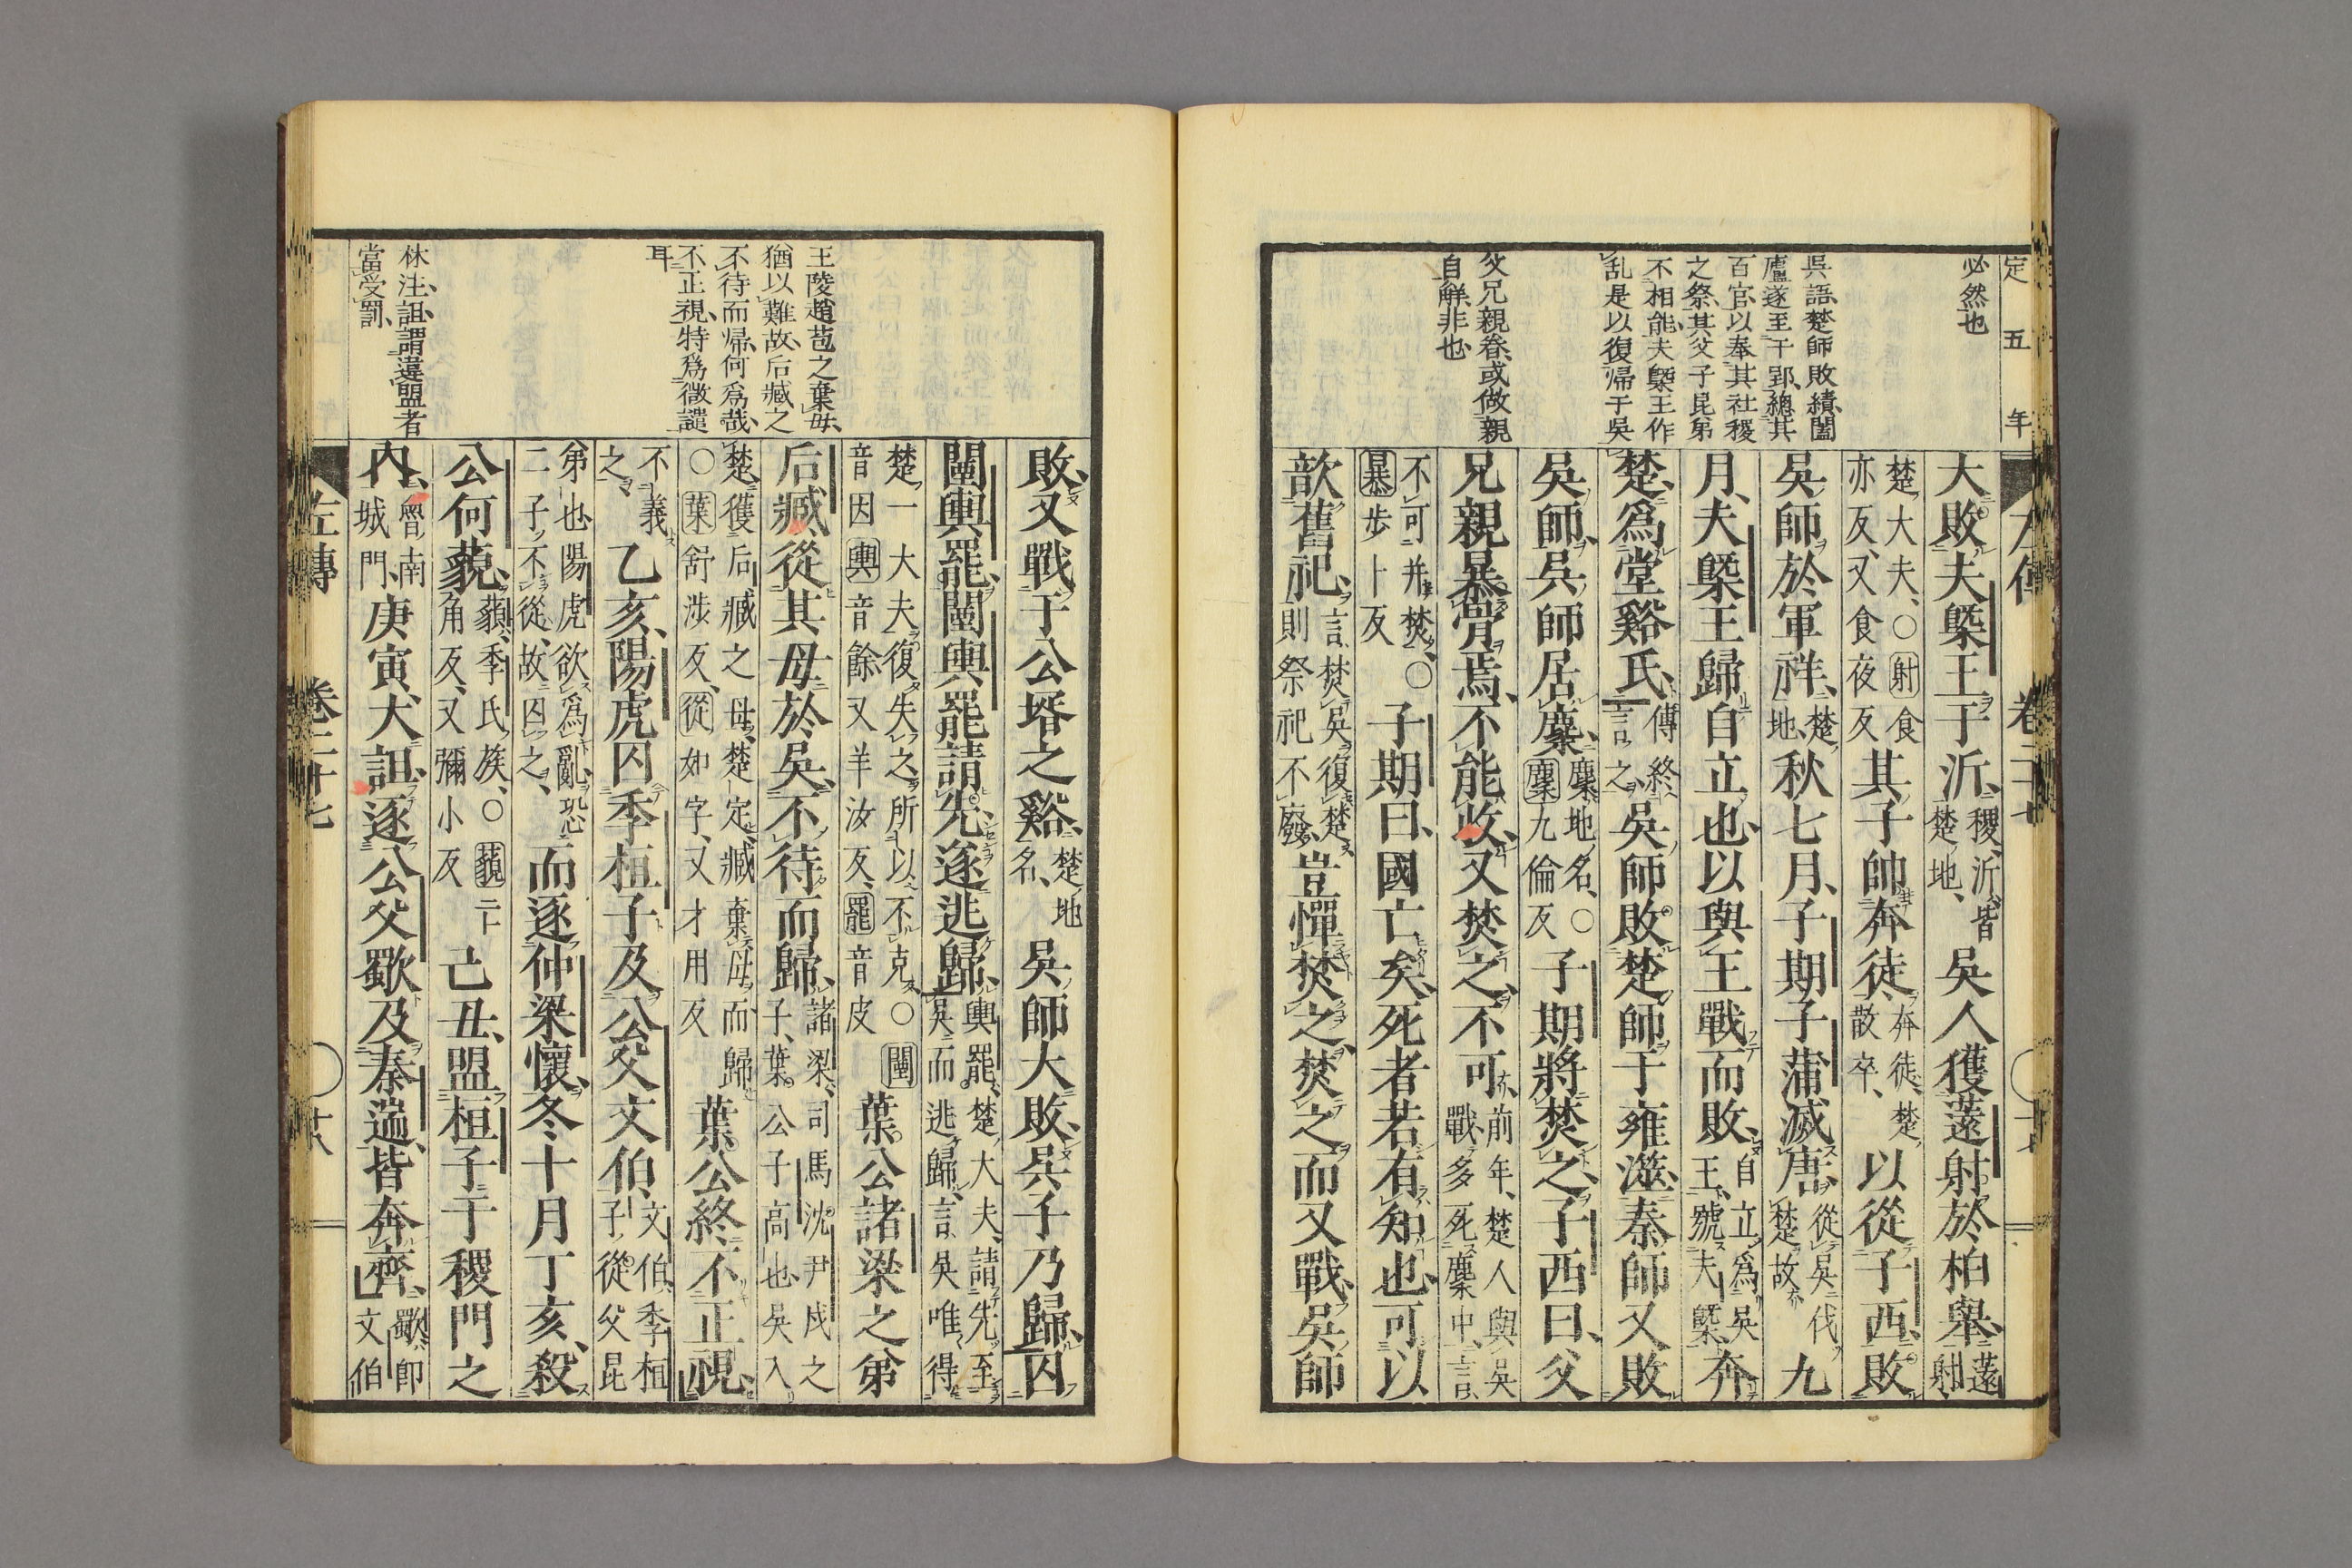 定五年
必然也
吳語、楚師敗績、闔
廬遂至于郢、總其
百官、以奉其社稷
之祭、其父子昆弟
不相能、夫槩王作
乱是以復帰于吳
父兄親眷、或做親
自解、非也
左傳　卷二十七
大敗夫槩王于沂、稷、沂、皆楚地、吳人獲薳射於柏舉、薳射
楚大夫、○射食亦反、又食夜反其子帥奔徒、奔徒、楚散卒、以從子西、敗
吳師於軍祥、楚地、秋七月、子期子蒲滅唐、從吳伐楚故九
月、夫槩王歸自立也、以與王戰而敗、自立爲吳王、號夫槩、奔
楚、爲堂谿氏、傳終言之、吳師敗楚師于雍澨、秦師又敗
吳師、吳師居麇、麇地名、○麇九倫反子期將焚之、子西曰、父
兄親暴骨焉、不能收、又焚之、不可、前年、楚人與吳戰、多死麇中、言
不可并焚、○暴步卜反子期曰、國亡矣、死者若有知也、可以
歆舊祀、言焚吳復楚、則祭祀不廢、豈憚焚之、焚之而又戰、吳師
王陵趙苞之棄母、
猶以難故、后臧之
不待而帰、何爲哉、
不正視、特爲微譴
耳
林注、詛謂違盟者
當受罰、
敗、又戰于公壻之谿、楚地名、吳師大敗、吳子乃歸、囚
闉輿罷、闉輿罷請先、遂逃歸、輿罷、楚大夫、請先至吳而逃歸、言吳唯得
楚一大夫、復失之、所以不克、○闉音因輿音餘又羊汝反、罷音皮葉公諸梁之弟
后臧從其母於吳、不待而歸、諸梁、司馬沈尹戌之子、葉公子高也、吳入
楚、獲后臧之母、楚定、臧棄母而歸○葉舒涉反、從如字、又才用反葉公終不正視、
不義之、乙亥、陽虎囚季桓子及公父文伯、文伯、季桓子從父昆
弟也、陽虎欲爲亂、恐二子不從、故囚之、而逐仲梁懷、冬十月丁亥、殺
公何藐、藐、季氏族、○藐亡角反、又彌小反己丑、盟桓子于稷門之
内、魯南城門、庚寅、大詛、逐公父歜及秦遄、皆奔齊、歜即文伯
左傳　卷二十七　十八